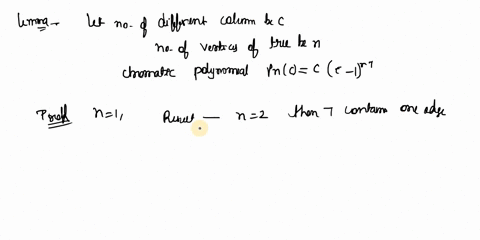 Lemma - Let no. of different column be c
no. of vertices of tree be n
chromatic polynomial Pn(c) = c (c-1)^n-1
Proof n=1, Result — n=2 then T contains one edge